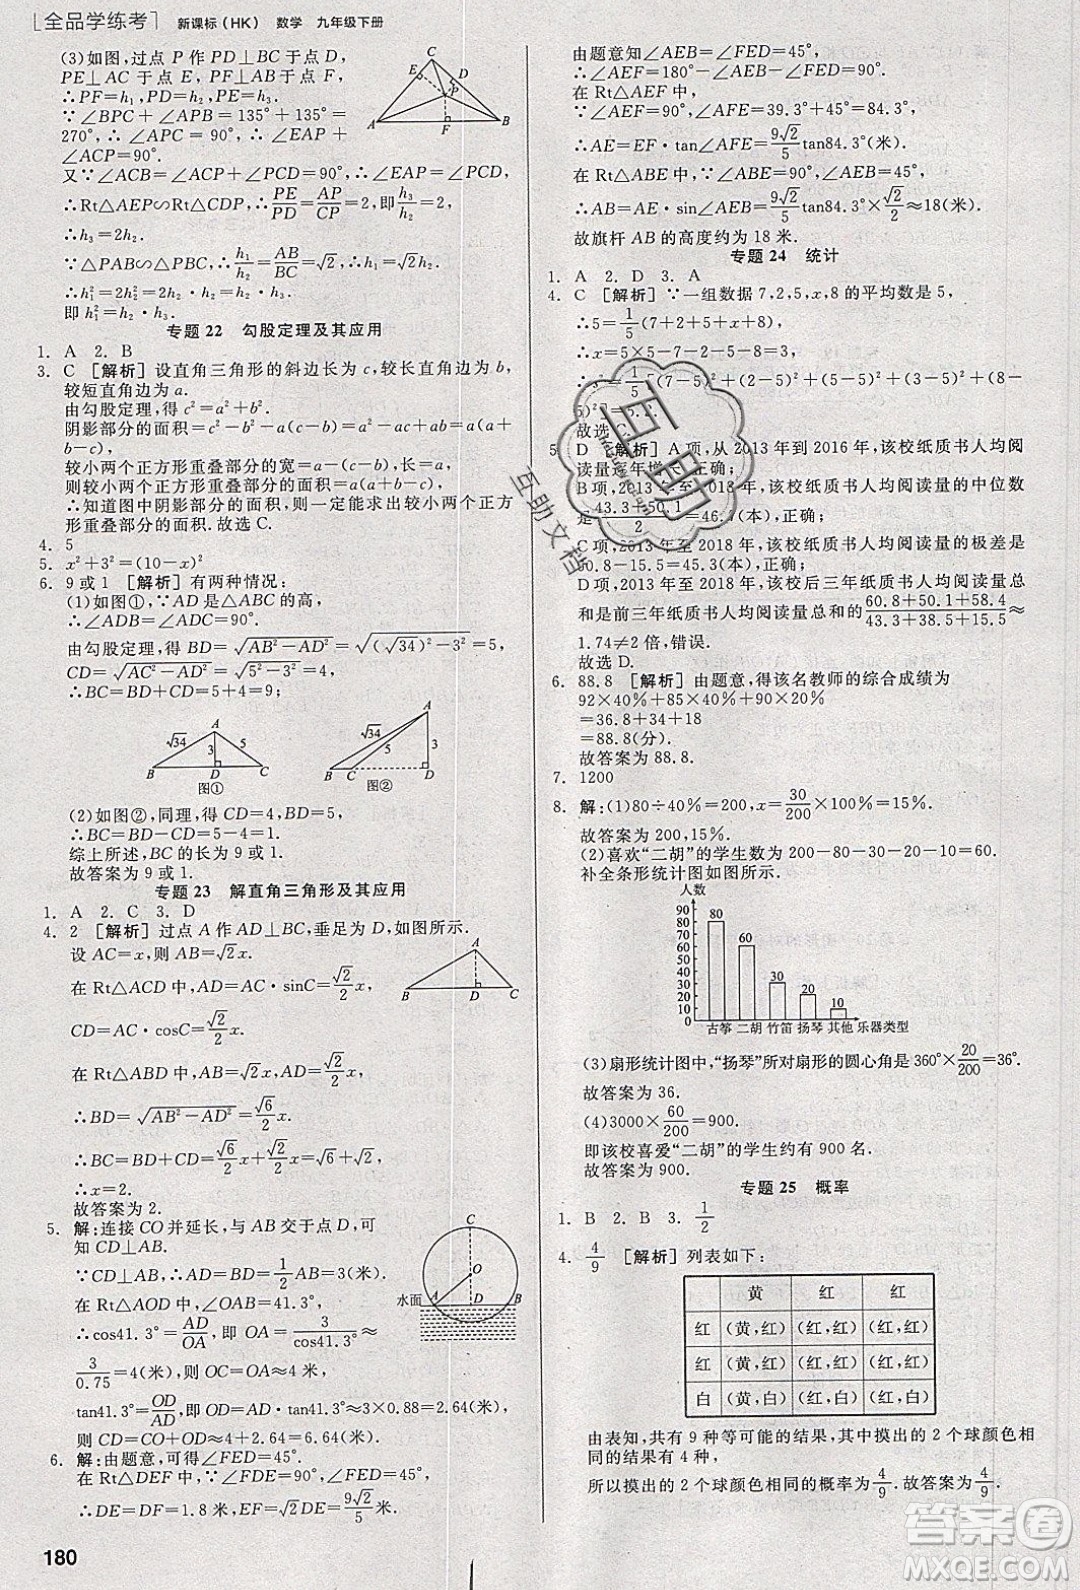 [全品学练考] 新课标(HK) 数学 九年级下册
(3)如图,过点 P 作 PD⊥BC 于点 D,
PE⊥AC 于点 E,
∴PF=h₁,PD=h₂,PE=h₃.
∵∠BPC+∠APB=135°+135°=
270°,∴∠APC=90°,∴∠EAP+
∠ACP=90°.
又∵∠ACB=∠ACP+∠PCD=90°,∴∠EAP=∠PCD,
∴Rt△AEP∽Rt△CDP,∴PE/PD=AP/CP=2,即h₃/h₂=2,
∴h₃=2h₂.
∵△PAB∽△PBC,∴h₁/h₂=AB/BC=√2,∴h₁=√2h₂,
∴h₁²=2h₂²=2h₂·h₂=h₂h₃.
即 h₁²=h₂·h₃.
C
E
D
P
A
F
B
专题 22 勾股定理及其应用
1. A 2. B
3. C [解析] 设直角三角形的斜边长为 c,较长直角边为 b,
较短直角边为 a.
由勾股定理,得 c²=a²+b².
阴影部分的面积=c²-b²-a(c-b)=a²-ac+ab=a(a+
b-c),
较小两个正方形重叠部分的宽=a-(c-b),长=a,
则较小两个正方形重叠部分的面积=a(a+b-c),
∴知道图中阴影部分的面积,则一定能求出较小两个正方
形重叠部分的面积.故选 C.
4. 5
5. x²+3²=(10-x)²
6. 9 或 1 [解析] 有两种情况:
(1)如图①,∵AD 是△ABC 的高,
∴∠ADB=∠ADC=90°.
由勾股定理,得 BD=√(AB²-AD²)=√((√34)²-3²)=5,
CD=√(AC²-AD²)=√(5²-3²)=4,
∴BC=BD+CD=5+4=9;
A
√34
3
5
B
D
C
图①
A
√34
5
3
B
C
D
图②
(2)如图②,同理,得 CD=4,BD=5,
∴BC=BD-CD=5-4=1.
综上所述,BC 的长为 9 或 1.
故答案为 9 或 1.
专题 23 解直角三角形及其应用
1. A 2. C 3. D
4. 2 [解析] 过点 A 作 AD⊥BC,垂足为 D,如图所示.
设 AC=x,则 AB=√2x.
在 Rt△ACD 中,AD=AC·sinC=√2/2x,
CD=AC·cosC=√2/2x.
在 Rt△ABD 中,AB=√2x,AD=√2/2x,
∴BD=√(AB²-AD²)=√6/2x,
∴BC=BD+CD=√6/2x+√2/2x=√6+√2,
∴x=2.
故答案为 2.
A
B
D
C
5. 解:连接 CO 并延长,与 AB 交于点 D,可
知 CD⊥AB.
∵CD⊥AB,∴AD=BD=1/2AB=3(米).
在 Rt△AOD 中,∠OAB=41.3°,
∴cos41.3°=AD/OA,即 OA=3/cos41.3°≈
3/0.75=4(米),则 OC=OA=4 米.
tan41.3°=OD/AD,即 OD=AD·tan41.3°≈3×0.88=2.64(米),
则 CD=CO+OD≈4+2.64=6.64(米).
C
O
水面
A
D
B
6. 解:由题意,可得∠FED=45°.
在 Rt△DEF 中,∵∠FDE=90°,∠FED=45°,
∴DE=DF=1.8 米,EF=√2DE=9√2/5(米).
180
由题意知∠AEB=∠FED=45°,
∴∠AEF=180°-∠AEB-∠FED=90°.
在 Rt△AEF 中,
∵∠AEF=90°,∠AFE=39.3°+45°=84.3°,
∴AE=EF·tan∠AFE≈9√2/5tan84.3°(米).
在 Rt△ABE 中,∵∠ABE=90°,∠AEB=45°,
∴AB=AE·sin∠AEB≈9√2/5tan84.3°×√2/2≈18(米).
故旗杆 AB 的高度约为 18 米.
专题 24 统计
1. A 2. D 3. A
4. C [解析] ∵一组数据 7,2,5,x,8 的平均数是 5,
∴5=1/5(7+2+5+x+8),
∴x=5×5-7-2-5-8=3,
1/5[(7-5)²+(2-5)²+(5-5)²+(3-5)²+(8-
5)²]=5.2.
故选 C.
5. D [解析] A 项,从 2013 年到 2016 年,该校纸质书人均阅
读量逐年增长,正确;
B 项,2013 年至 2018 年,该校纸质书人均阅读量的中位数
是(43.3+50.1)/2=46.7(本),正确;
C 项,2013 年至 2018 年,该校纸质书人均阅读量的极差是
60.8-15.5=45.3(本),正确;
D 项,2013 年至 2018 年,该校后三年纸质书人均阅读量总
和是前三年纸质书人均阅读量总和的(60.8+50.1+58.4)/(43.3+38.6+15.5)≈
1.74≠2 倍,错误.
故选 D.
6. 88.8 [解析] 由题意,得该名教师的综合成绩为
92×40%+85×40%+90×20%
=36.8+34+18
=88.8(分).
故答案为 88.8.
7. 1200
8. 解:(1)80÷40%=200,x=30/200×100%=15%.
故答案为 200,15%.
(2)喜欢“二胡”的学生数为 200-80-30-20-10=60.
补全条形统计图如图所示.
人数
90
80
70
60
50
40
30
20
10
0
80
60
30
20
10
古筝 二胡 竹笛 扬琴 其他 乐器类型
(3)扇形统计图中,“扬琴”所对扇形的圆心角是 360°×20/200=36°.
故答案为 36.
(4)3000×60/200=900.
即该校喜爱“二胡”的学生约有 900 名.
故答案为 900.
专题 25 概率
1. B 2. B 3. 1/2
4. 4/9 [解析] 列表如下:
黄 红 红
红 (黄,红) (红,红) (红,红)
红 (黄,红) (红,红) (红,红)
白 (黄,白) (红,白) (红,白)
由表知,共有 9 种等可能的结果,其中摸出的 2 个球颜色相
同的结果有 4 种,
所以摸出的 2 个球颜色相同的概率为4/9.故答案为4/9.
互助
互助文档
答案圈
MXQE.COM